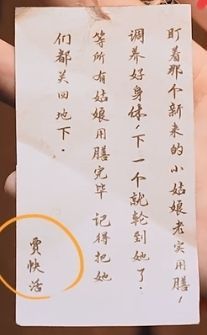 盯着那个新来的小姑娘老实用膳，
调养好身体，下一个就轮到她了．
等所有姑娘用膳完毕 记得把她
们都关回地下．
贾快活